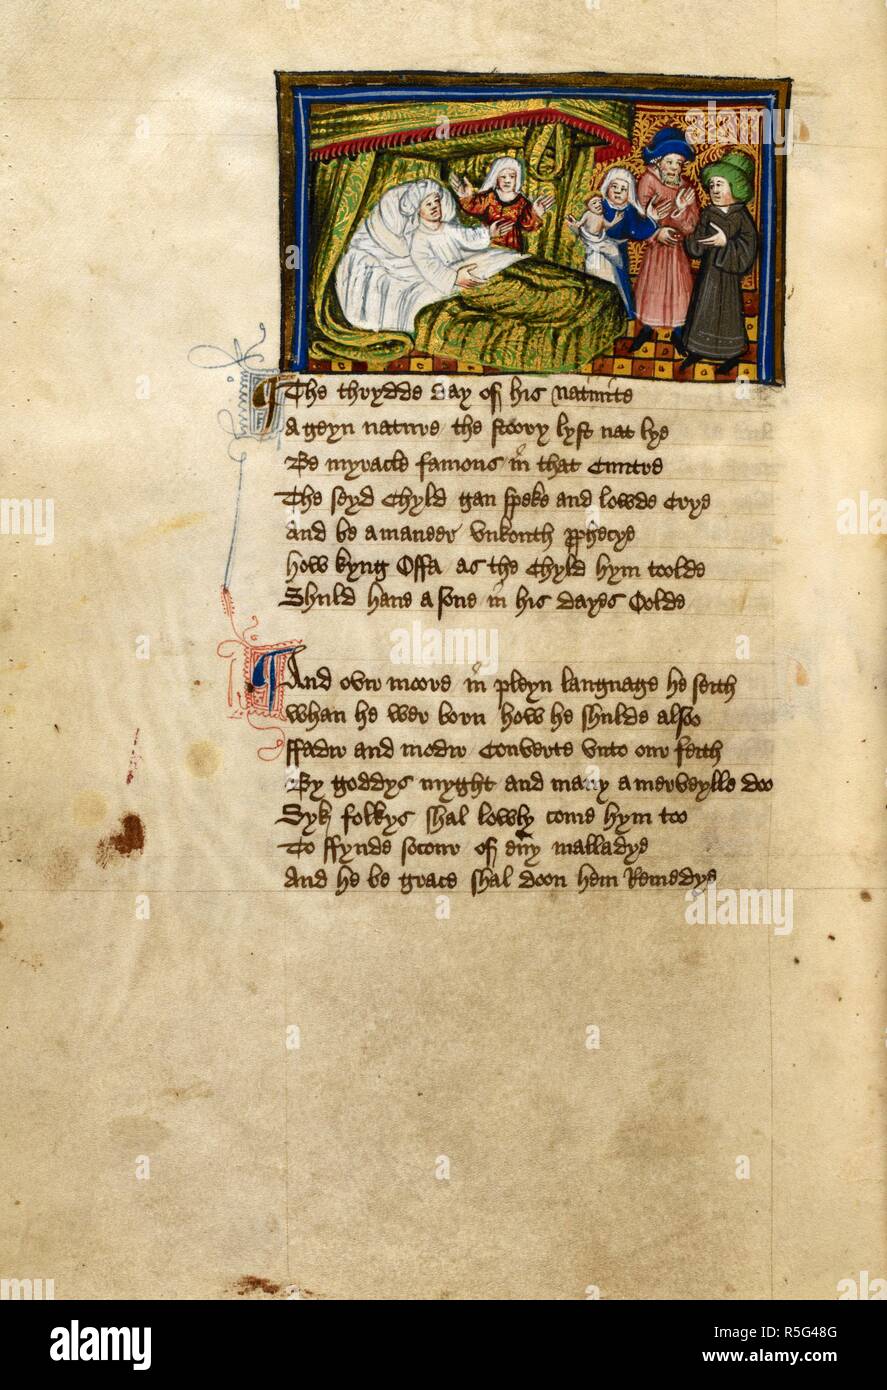 The thrydde day of his natiuite
Ageyn nature the stoory lyst nat lye
Be myracle famous in that Cuntre
The seyd Chyld gan speke and lowde Crye
And be a maneer vnkouth pphecye
how kyng Offa as the Chyld hym toolde
Shuld haue a sone in his dayes Oolde
And ovir moore in pleyn language he seith
whan he wer born how he shulde also
ffadir and modir Converte vnto our feith
By goddys myght and many a merveylle doo
Syk folkys shal lowly come hym too
To ffynde socour of eny malladye
And he be grace shal doon hem Remedye
alamy
Image ID: R5G48G
www.alamy.com